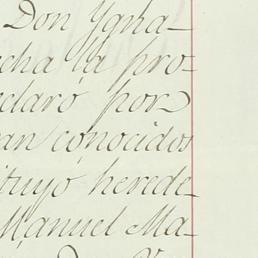 Don Ygna-
cha la pro-
claró por
an conocidos
ituyo herede-
Manuel Ma-